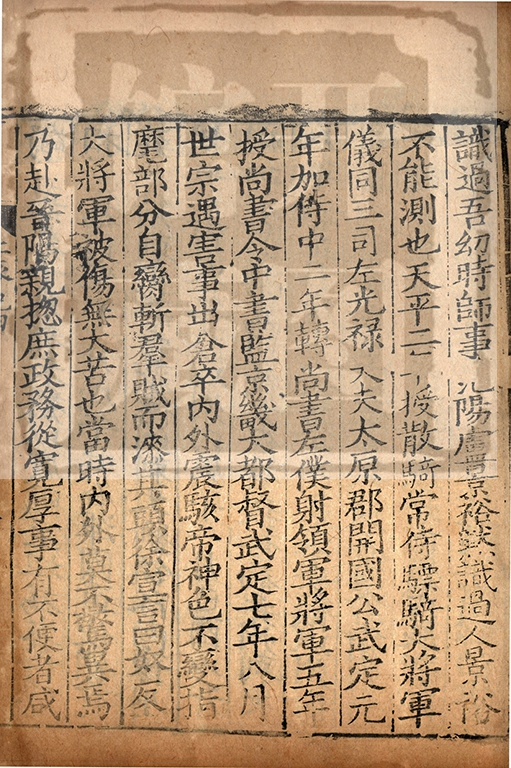 識過吾幼時師事陽盧景裕默識過人景裕
不能測也天平二授散騎常侍驃騎大將軍
儀同三司左光禄大夫太原郡開國公武定元
年加侍中二年轉尚書左僕射領軍將軍五年
授尚書令中書監京畿大都督武定七年八月
世宗遇害事出倉卒内外震駭帝神色不變指
麾部分自臠斬羣賊而漆其頭徐宣言曰奴反
大將軍被傷無大苦也當時内外莫不驚異焉
乃赴晉陽親揔庶政務從寛厚事有不便者咸